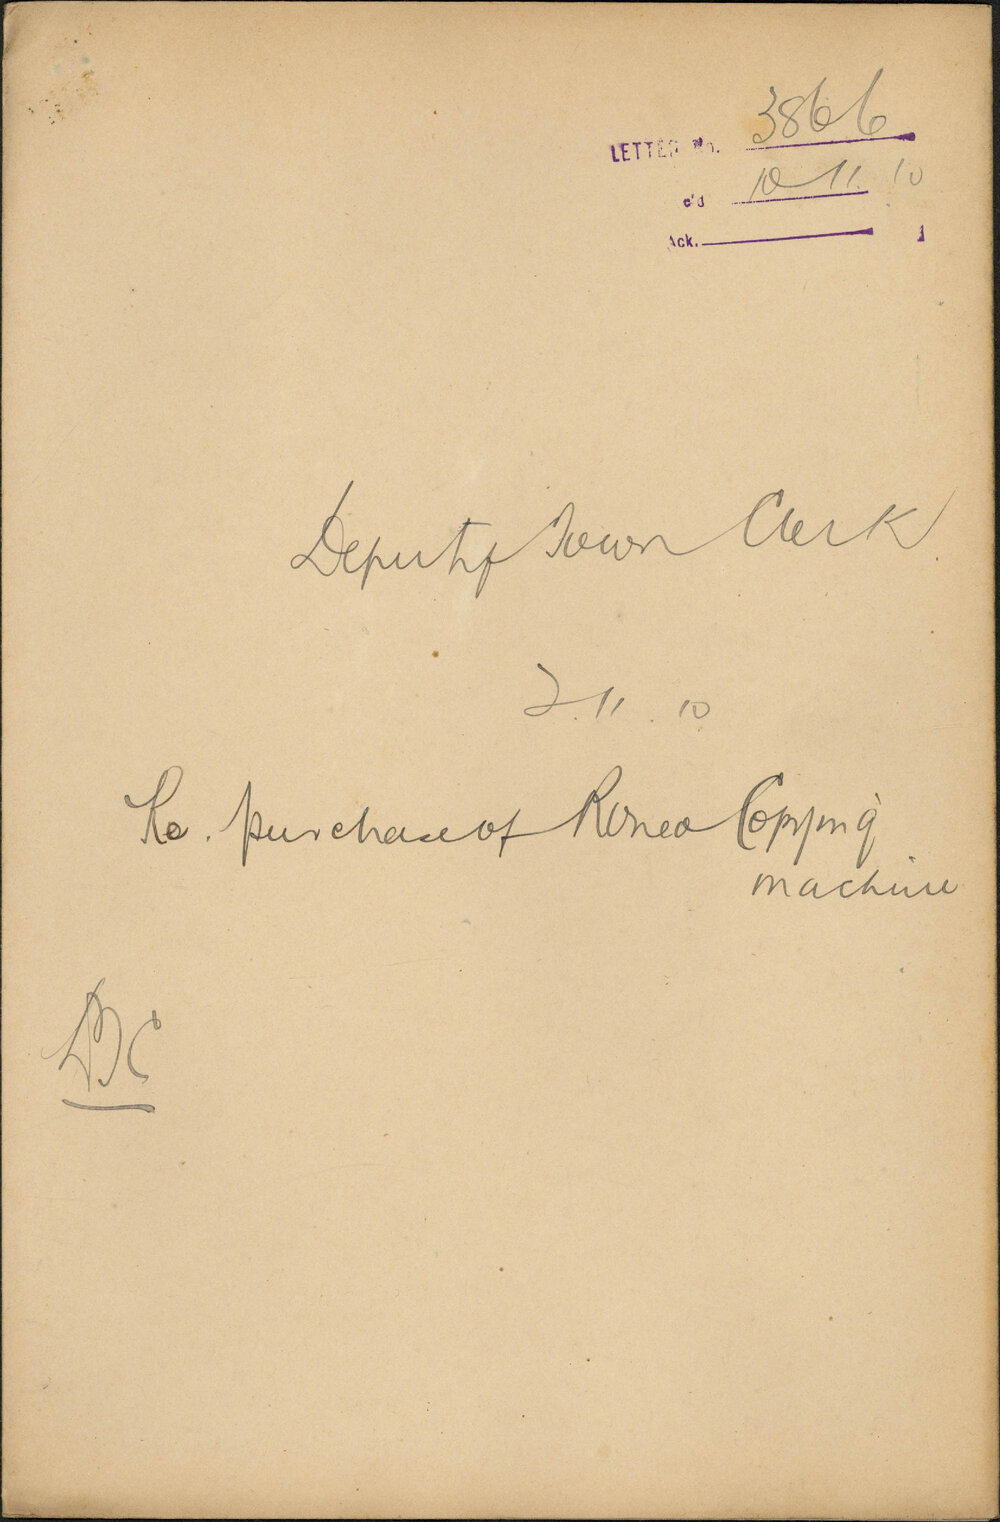 LETTER No. 3866
c'd 10 11. 10
Ack.
Deputy Town Clerk
2.11.10
Re. purchase of Roneo Copying
machine